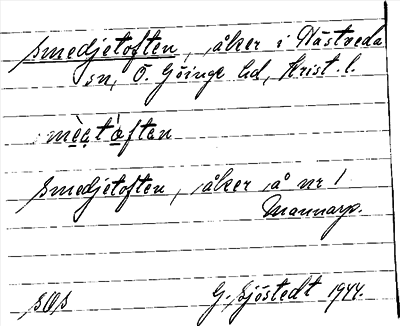 Smedjetoften, åker i Hästveda
sn, Ö. Göinge hd, Krist. l.
Smedjetoften, åker å nr 1
Mannarp.
SOS
G. Sjöstedt 1944.